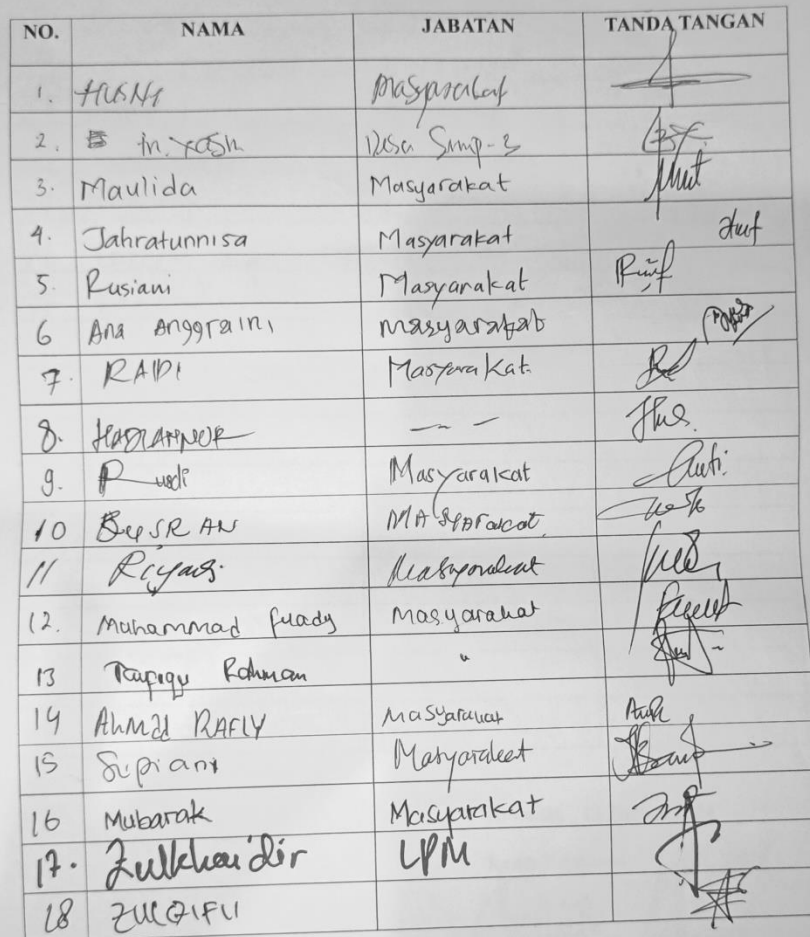 NO. NAMA JABATAN TANDA TANGAN
1. HUSNI Masyarakat
2. M. Yash Desa Simp-3
3. Maulida Masyarakat
4. Jahratunnisa Masyarakat
5. Rusiani Masyarakat
6 Ana Anggraini Masyarakat
7. RAPI Masyarakat.
8. HADIANNOR — –
9. Rudi Masyarakat
10 BUSRAN MASYARAKAT
11 Riyadi Masyarakat
12. Muhammad fuady Masyarakat
13 Taupiqu Rahman "
14 AHMAD RAFLY Masyarakat
15 Supiani Masyarakat
16 Mubarak Masyarakat
17. Zulkhaidir LPM
18 ZULQIFLI